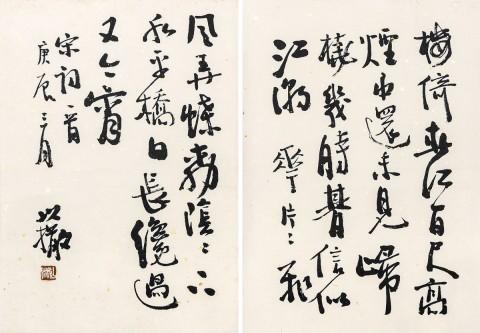 樓倚春江百尺高
煙中還未見歸
橈幾時朞信似
江潮花片〻飛
風弄蝶柳陰〻下
水平橋日長纔過
又今宵
宋詞一首
庚辰三月
以撒